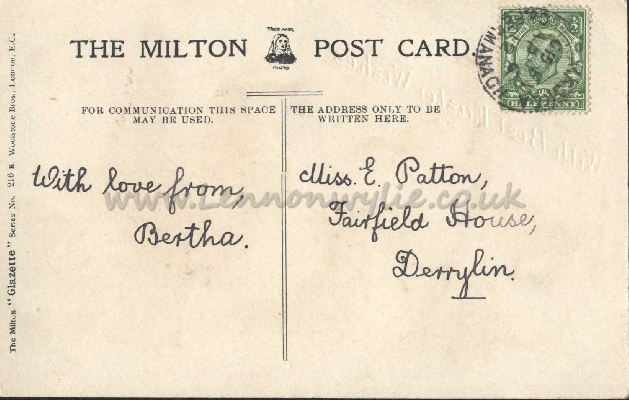 THE MILTON POST CARD.
TRADE MARK
HALFPENNY
With Best Easter Wishes
FOR COMMUNICATION THIS SPACE
MAY BE USED.
THE ADDRESS ONLY TO BE
WRITTEN HERE.
With love from,
Bertha.
Miss. E. Patton,
Fairfield House,
Derrylin.
www.Lennonwylie.co.uk
The Milton "Glazette" Series No. 216 E Woolstone Bros., London, E.C.